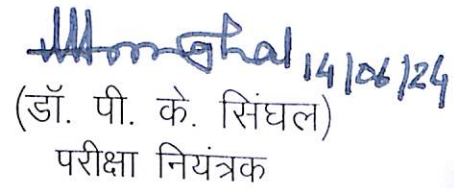 14/06/24
(डॉ. पी. के. सिंघल)
परीक्षा नियंत्रक